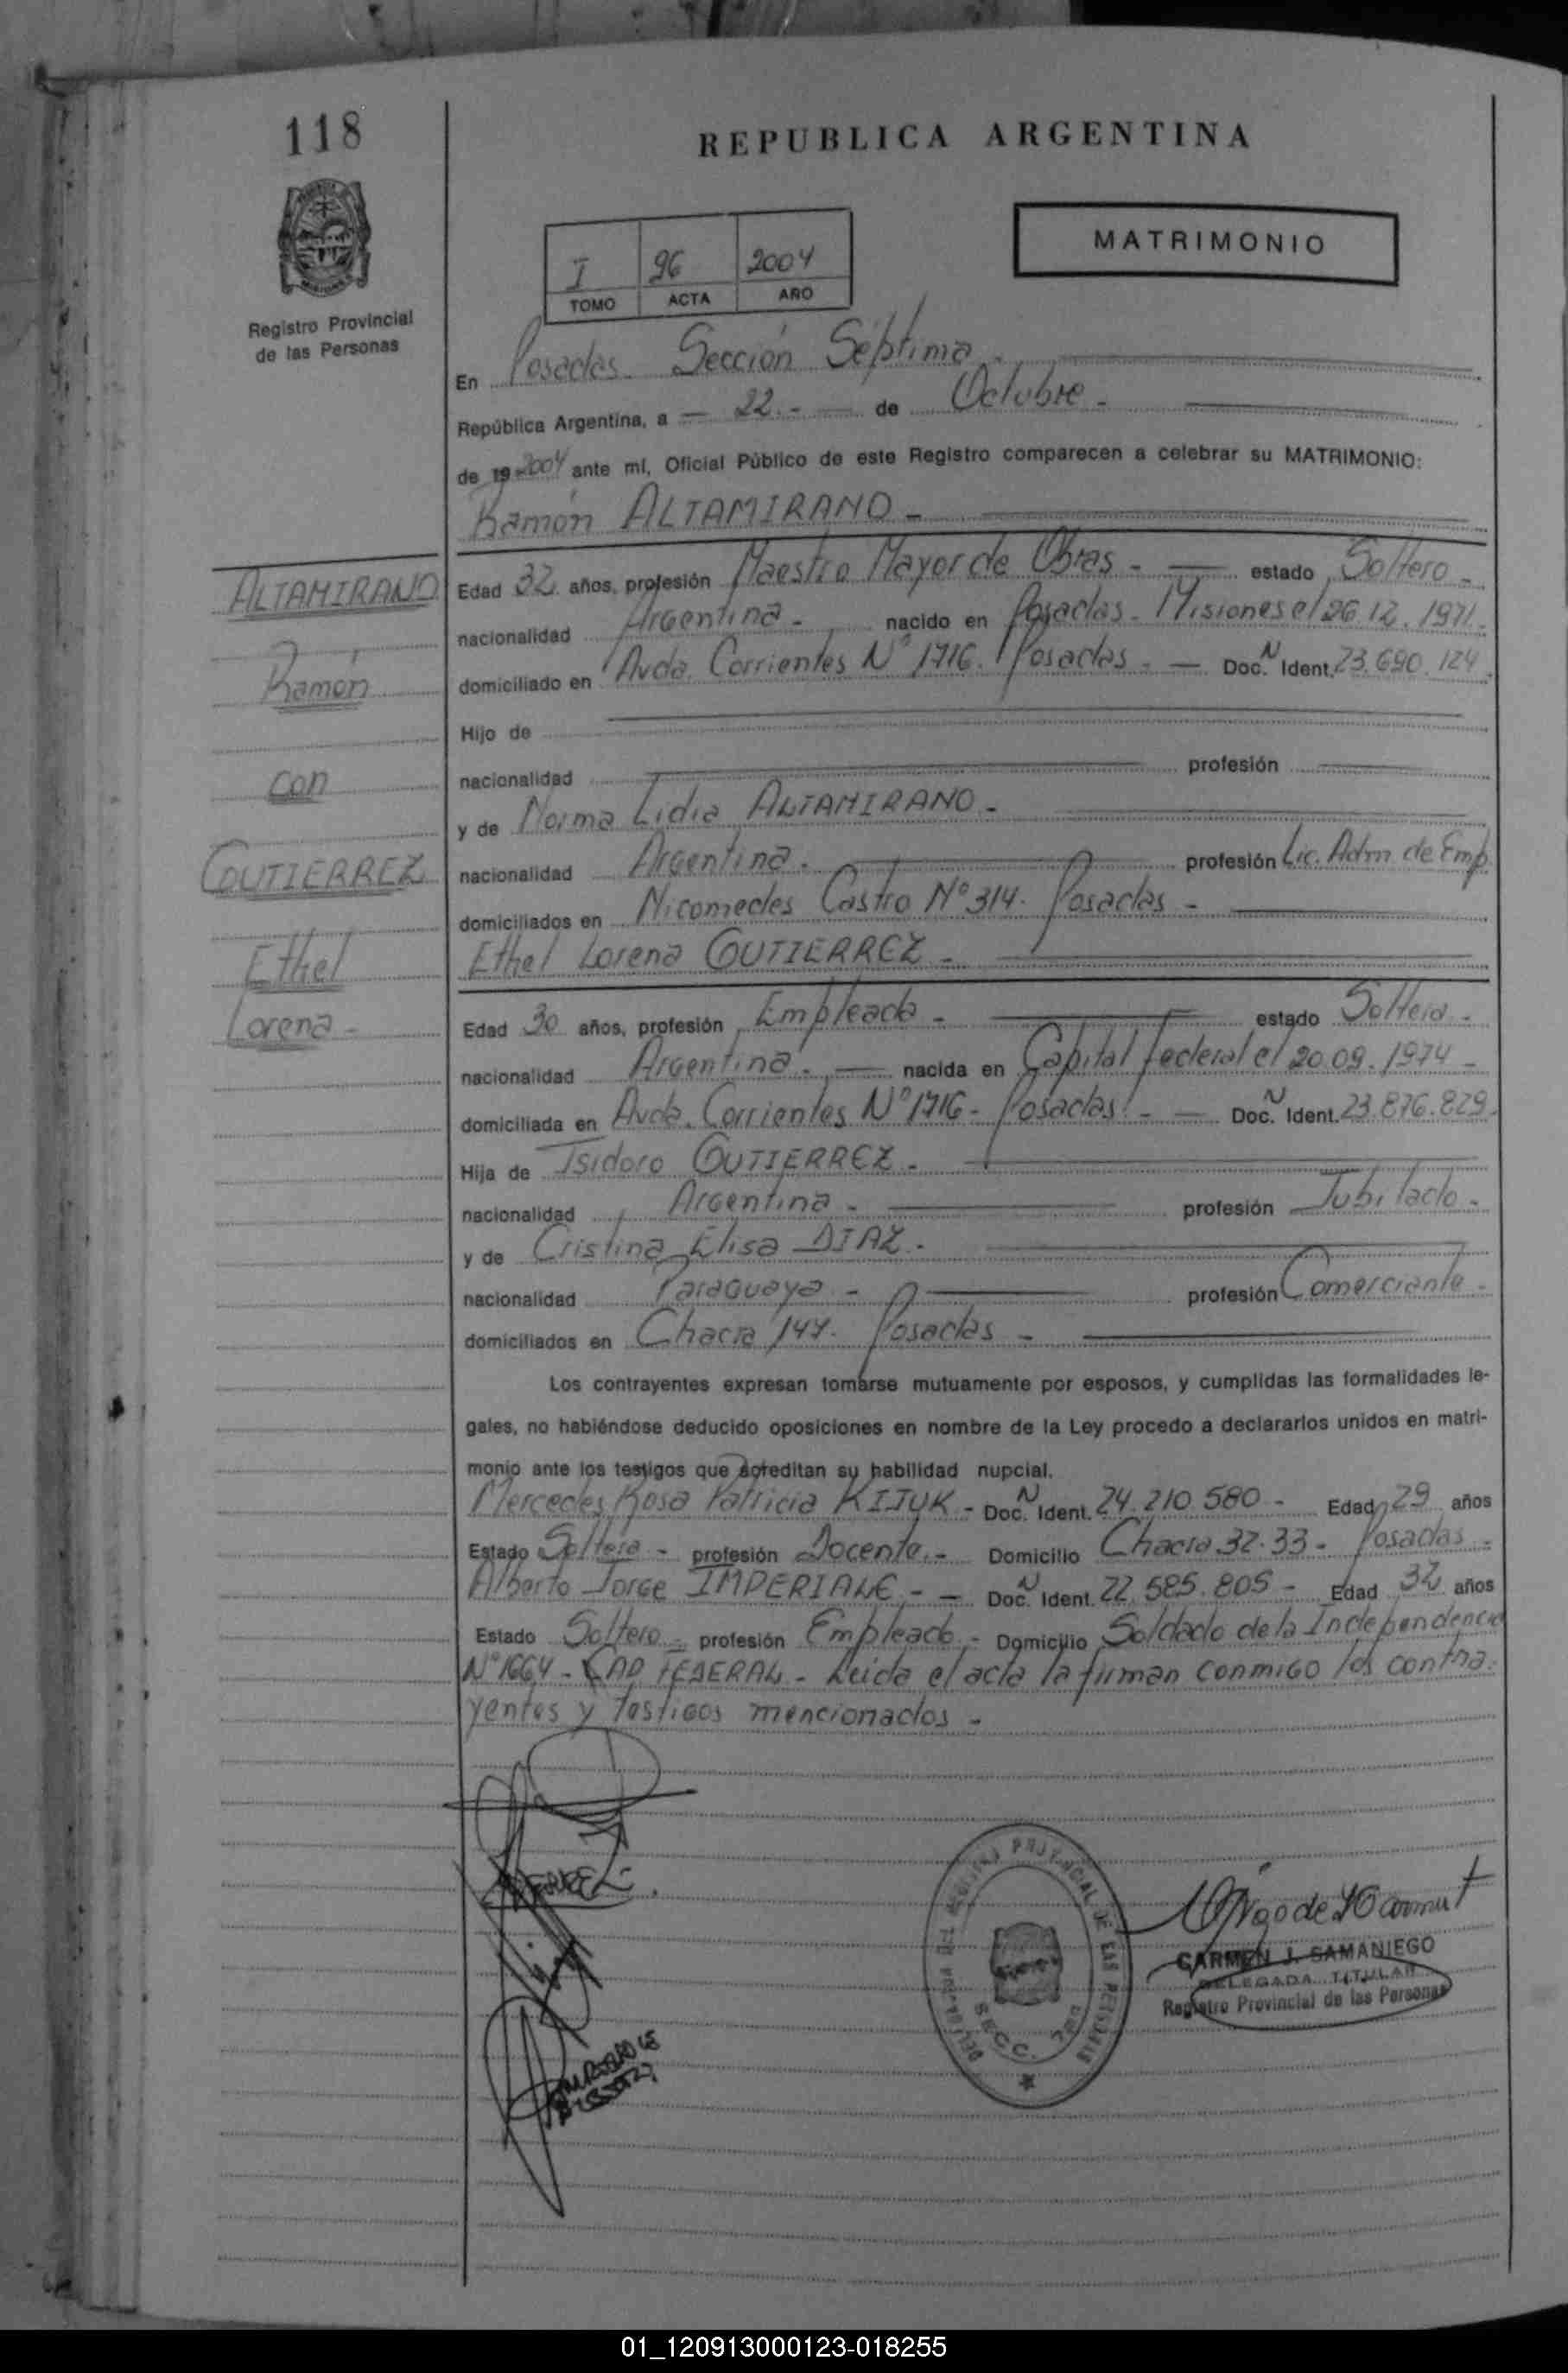 118
REPUBLICA ARGENTINA
MATRIMONIO
I 96 2004
TOMO ACTA AÑO
Registro Provincial
de las Personas
En Posadas. Sección Séptima.
República Argentina, a — 22.- — de Octubre.-
de 19 2004 ante mí, Oficial Público de este Registro comparecen a celebrar su MATRIMONIO:
Ramón ALTAMIRANO.-
ALTAMIRANO
Ramón
con
GUTIERREZ
Ethel
Lorena.-
Edad 32 años, profesión Maestro Mayor de Obras.- estado Soltero.-
nacionalidad Argentina.- nacido en Posadas. Misiones el 26.12.1971.-
domiciliado en Avda. Corrientes Nº 1716. Posadas.- — Doc. N Ident. 23.690.124
Hijo de
nacionalidad profesión
y de Norma Lidia ALTAMIRANO.-
nacionalidad Argentina.- profesión Lic. Adm de Emp.
domiciliados en Nicomedes Castro Nº 314. Posadas.-
Ethel Lorena GUTIERREZ.-
Edad 30 años, profesión Empleada.- estado Soltera.-
nacionalidad Argentina.- — nacida en Capital Federal el 20.09.1974.-
domiciliada en Avda. Corrientes Nº 1716.- Posadas.- — Doc. N Ident. 23.876.829.
Hija de Isidoro GUTIERREZ.-
nacionalidad Argentina.- profesión Jubilado.-
y de Cristina Elisa DIAZ.-
nacionalidad Paraguaya.- profesión Comerciante.-
domiciliados en Chacra 147. Posadas.-
Los contrayentes expresan tomarse mutuamente por esposos, y cumplidas las formalidades le-
gales, no habiéndose deducido oposiciones en nombre de la Ley procedo a declararlos unidos en matri-
monio ante los testigos que acreditan su habilidad nupcial.
Mercedes Rosa Patricia KIJUK.- Doc. N Ident. 24.210.580.- Edad 29 años
Estado Soltera.- profesión Docente.- Domicilio Chacra 32-33.- Posadas.-
Alberto Jorge IMPERIALE.- — Doc. N Ident. 22.585.805.- Edad 32 años
Estado Soltero.- profesión Empleado.- Domicilio Soldado de la Independencia
Nº 1664.- CAP FEDERAL.- Leida el acta la firman conmigo los contra-
yentes y testigos mencionados.-
REGISTRO PROVINCIAL DE LAS PERSONAS
SECC. 7ma
CARMEN J. SAMANIEGO
DELEGADA TITULAR
Registro Provincial de las Personas
01_120913000123-018255